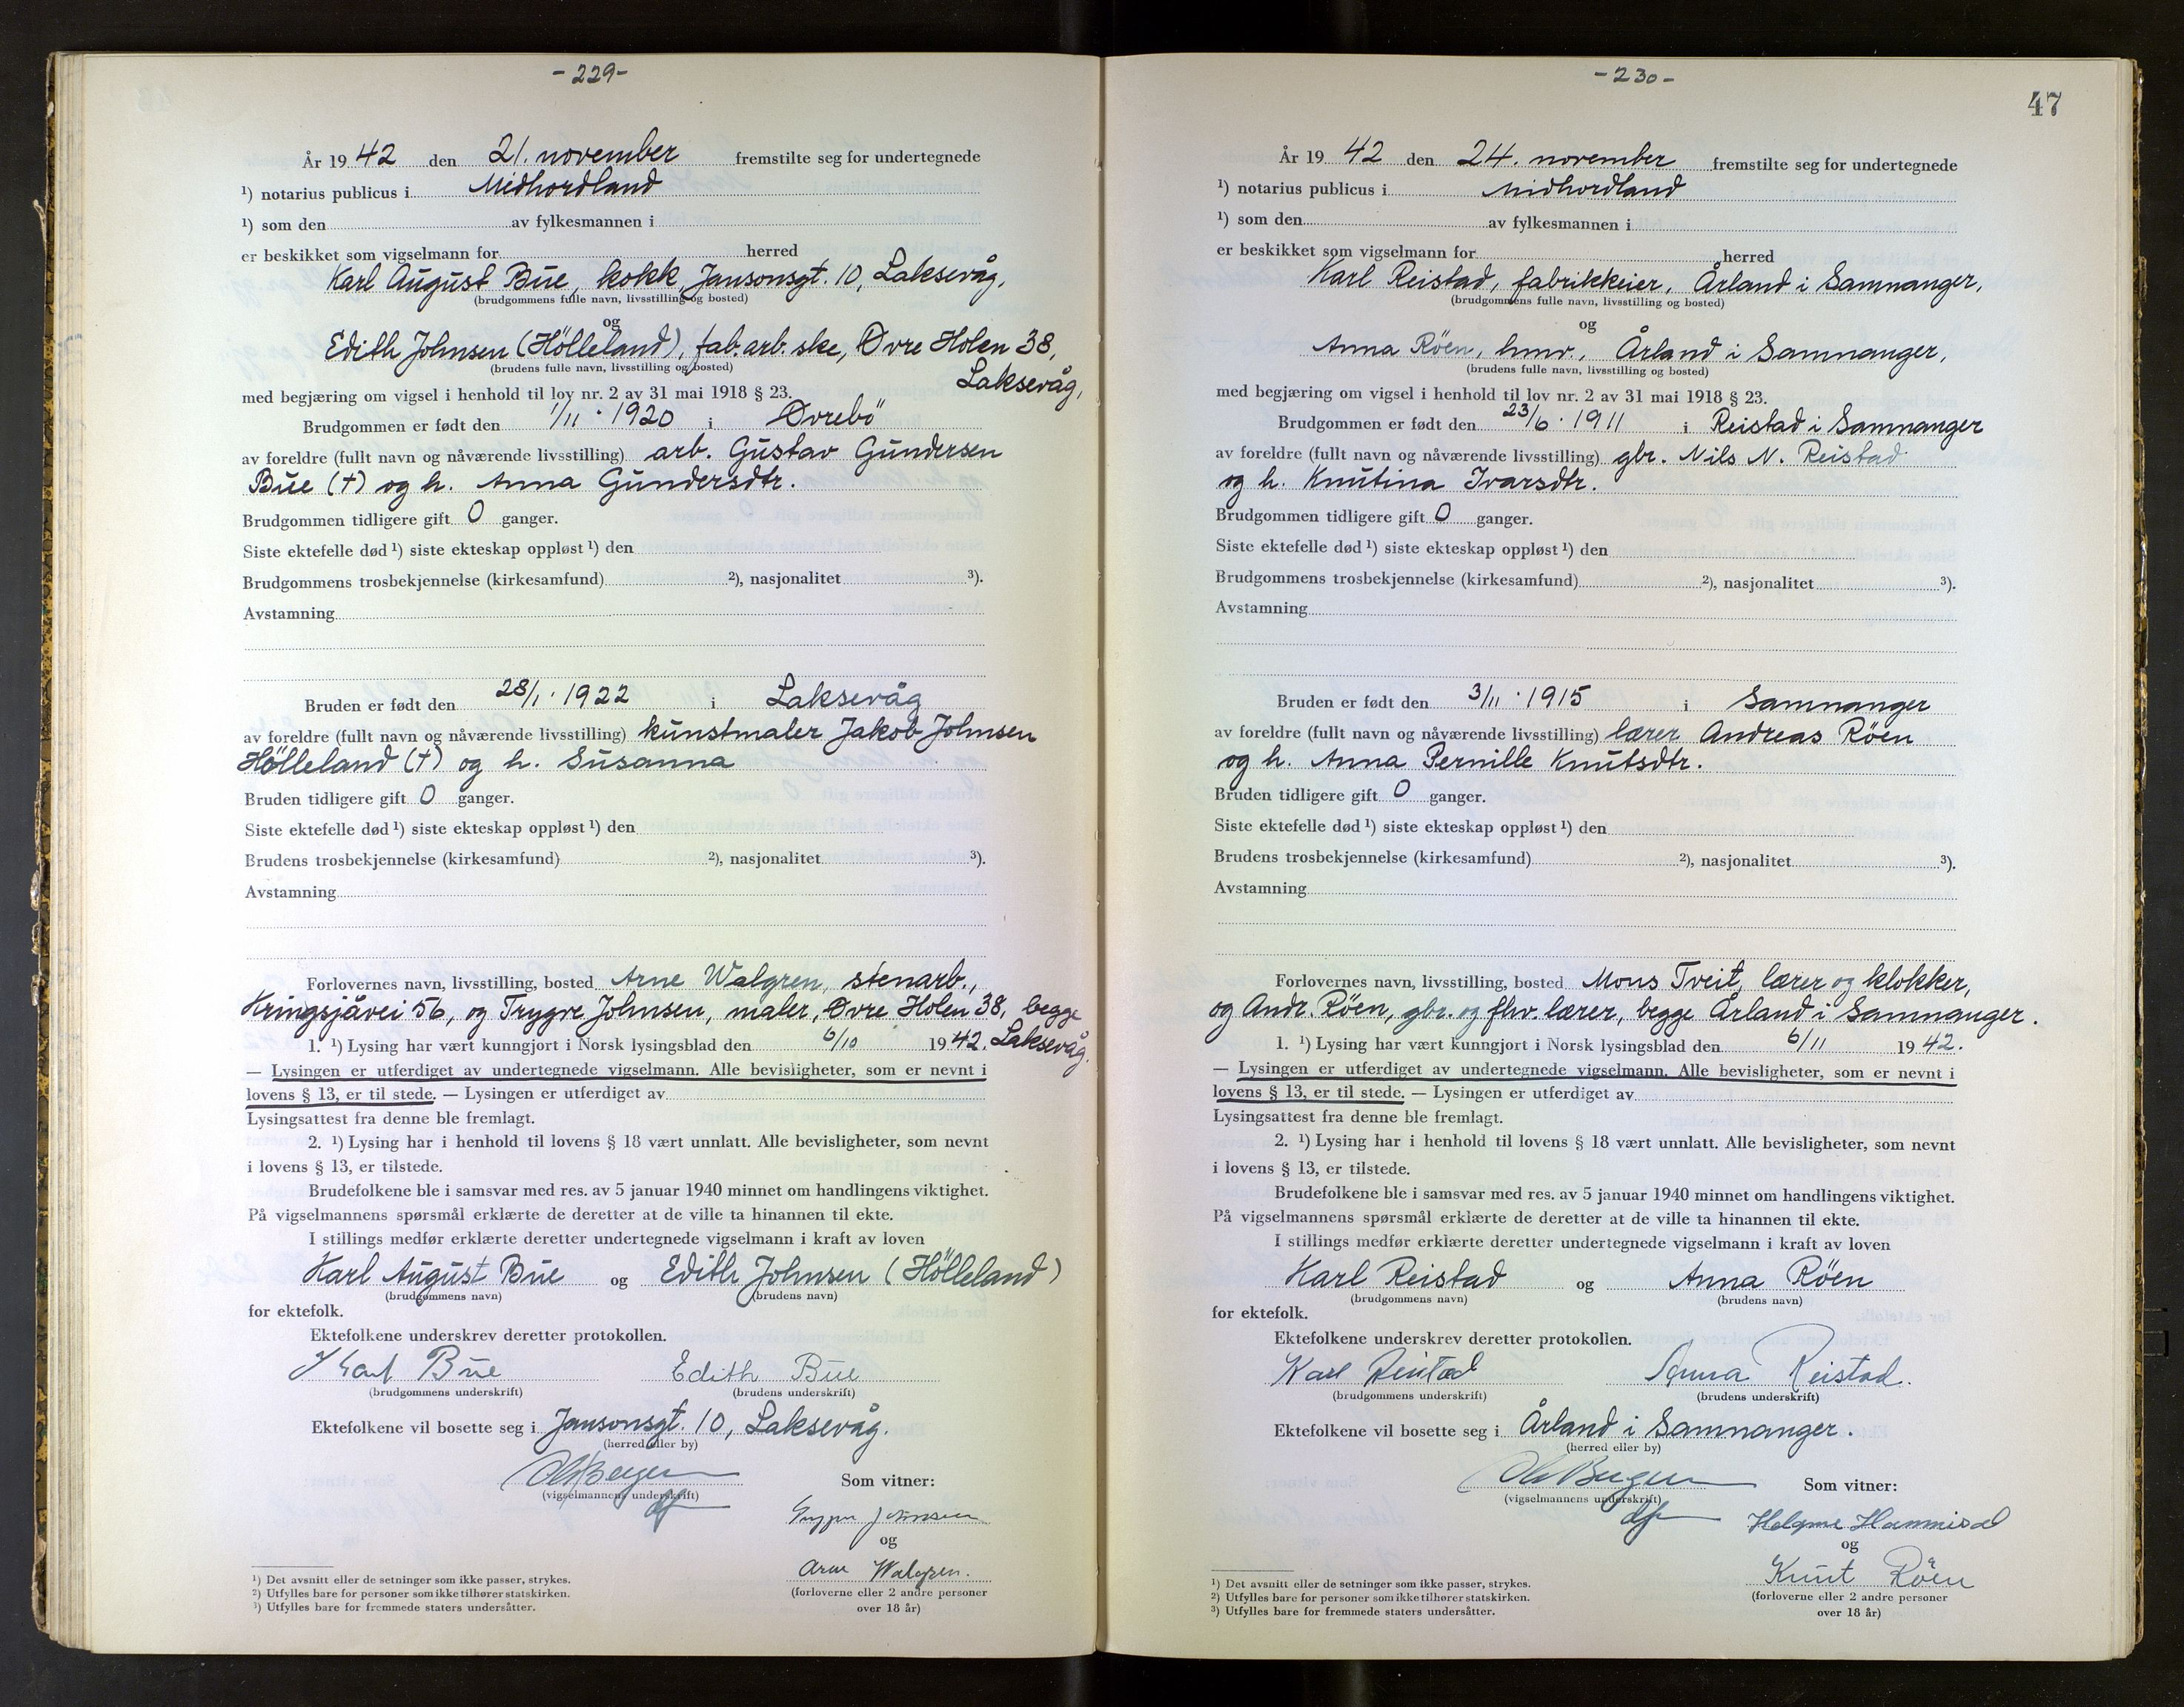 - 229 -
År 19 42 den 21. november fremstilte seg for undertegnede
¹) notarius publicus i Midhordland
¹) som den av fylkesmannen i
er beskikket som vigselmann for herred
Karl August Bue, kokk, Jansonsgt. 10, Laksevåg,
(brudgommens fulle navn, livsstilling og bosted)
og
Edith Johnsen (Hölleland), fab.arb.ske, Øvre Holen 38,
(brudens fulle navn, livsstilling og bosted)
Laksevåg,
med begjæring om vigsel i henhold til lov nr. 2 av 31 mai 1918 § 23.
Brudgommen er født den 1/11 · 1920 i Øvrebö
av foreldre (fullt navn og nåværende livsstilling) arb. Gustav Gundersen
Bue (†) og h. Anna Gundersdtr.
Brudgommen tidligere gift 0 ganger.
Siste ektefelle død ¹) siste ekteskap oppløst ¹) den
Brudgommens trosbekjennelse (kirkesamfund) ²), nasjonalitet ³).
Avstamning
Bruden er født den 28/1 · 1922 i Laksevåg
av foreldre (fullt navn og nåværende livsstilling) kunstmaler Jakob Johnsen
Hölleland (†) og h. Susanna
Bruden tidligere gift 0 ganger.
Siste ektefelle død ¹) siste ekteskap oppløst ¹) den
Brudens trosbekjennelse (kirkesamfund) ²), nasjonalitet ³).
Avstamning
Forlovernes navn, livsstilling, bosted Arne Walgren, stenarb.,
Kringsjåvei 56, og Trygve Johnsen, maler, Øvre Holen 38, begge
1. ¹) Lysing har vært kunngjort i Norsk lysingsblad den 6/10 19 42. Laksevåg.
— Lysingen er utferdiget av undertegnede vigselmann. Alle bevisligheter, som er nevnt i
lovens § 13, er til stede. — Lysingen er utferdiget av
Lysingsattest fra denne ble fremlagt.
2. ¹) Lysing har i henhold til lovens § 18 vært unnlatt. Alle bevisligheter, som nevnt
i lovens § 13, er tilstede.
Brudefolkene ble i samsvar med res. av 5 januar 1940 minnet om handlingens viktighet.
På vigselmannens spørsmål erklærte de deretter at de ville ta hinannen til ekte.
I stillings medfør erklærte deretter undertegnede vigselmann i kraft av loven
Karl August Bue og Edith Johnsen (Hölleland)
(brudgommens navn) (brudens navn)
for ektefolk.
Ektefolkene underskrev deretter protokollen.
Karl Bue Edith Bue
(brudgommens underskrift) (brudens underskrift)
Ektefolkene vil bosette seg i Jansonsgt. 10, Laksevåg.
(herred eller by)
Som vitner:
(vigselmannens underskrift)
Trygve Johnsen
og
Arne Walgren.
(forloverne eller 2 andre personer
over 18 år)
¹) Det avsnitt eller de setninger som ikke passer, strykes.
²) Utfylles bare for personer som ikke tilhører statskirken.
³) Utfylles bare for fremmede staters undersåtter.
- 230 -
47
År 19 42 den 24. november fremstilte seg for undertegnede
¹) notarius publicus i Midhordland
¹) som den av fylkesmannen i
er beskikket som vigselmann for herred
Karl Reistad, fabrikkeier, Årland i Samnanger,
(brudgommens fulle navn, livsstilling og bosted)
og
Anna Röen, hmv., Årland i Samnanger,
(brudens fulle navn, livsstilling og bosted)
med begjæring om vigsel i henhold til lov nr. 2 av 31 mai 1918 § 23.
Brudgommen er født den 23/6 · 1911 i Reistad i Samnanger
av foreldre (fullt navn og nåværende livsstilling) gbr. Nils N. Reistad
og h. Knutina Ivarsdtr.
Brudgommen tidligere gift 0 ganger.
Siste ektefelle død ¹) siste ekteskap oppløst ¹) den
Brudgommens trosbekjennelse (kirkesamfund) ²), nasjonalitet ³).
Avstamning
Bruden er født den 3/11 · 1915 i Samnanger
av foreldre (fullt navn og nåværende livsstilling) lærer Andreas Röen
og h. Anna Pernille Knutsdtr.
Bruden tidligere gift 0 ganger.
Siste ektefelle død ¹) siste ekteskap oppløst ¹) den
Brudens trosbekjennelse (kirkesamfund) ²), nasjonalitet ³).
Avstamning
Forlovernes navn, livsstilling, bosted Mons Tveit, lærer og klokker,
og Andr. Röen, gbr. og fhv. lærer, begge Årland i Samnanger.
1. ¹) Lysing har vært kunngjort i Norsk lysingsblad den 6/11 19 42.
— Lysingen er utferdiget av undertegnede vigselmann. Alle bevisligheter, som er nevnt i
lovens § 13, er til stede. — Lysingen er utferdiget av
Lysingsattest fra denne ble fremlagt.
2. ¹) Lysing har i henhold til lovens § 18 vært unnlatt. Alle bevisligheter, som nevnt
i lovens § 13, er tilstede.
Brudefolkene ble i samsvar med res. av 5 januar 1940 minnet om handlingens viktighet.
På vigselmannens spørsmål erklærte de deretter at de ville ta hinannen til ekte.
I stillings medfør erklærte deretter undertegnede vigselmann i kraft av loven
Karl Reistad og Anna Röen
(brudgommens navn) (brudens navn)
for ektefolk.
Ektefolkene underskrev deretter protokollen.
Karl Reistad Anna Reistad.
(brudgommens underskrift) (brudens underskrift)
Ektefolkene vil bosette seg i Årland i Samnanger.
(herred eller by)
Som vitner:
(vigselmannens underskrift)
og
Knut Röen
(forloverne eller 2 andre personer
over 18 år)
¹) Det avsnitt eller de setninger som ikke passer, strykes.
²) Utfylles bare for personer som ikke tilhører statskirken.
³) Utfylles bare for fremmede staters undersåtter.